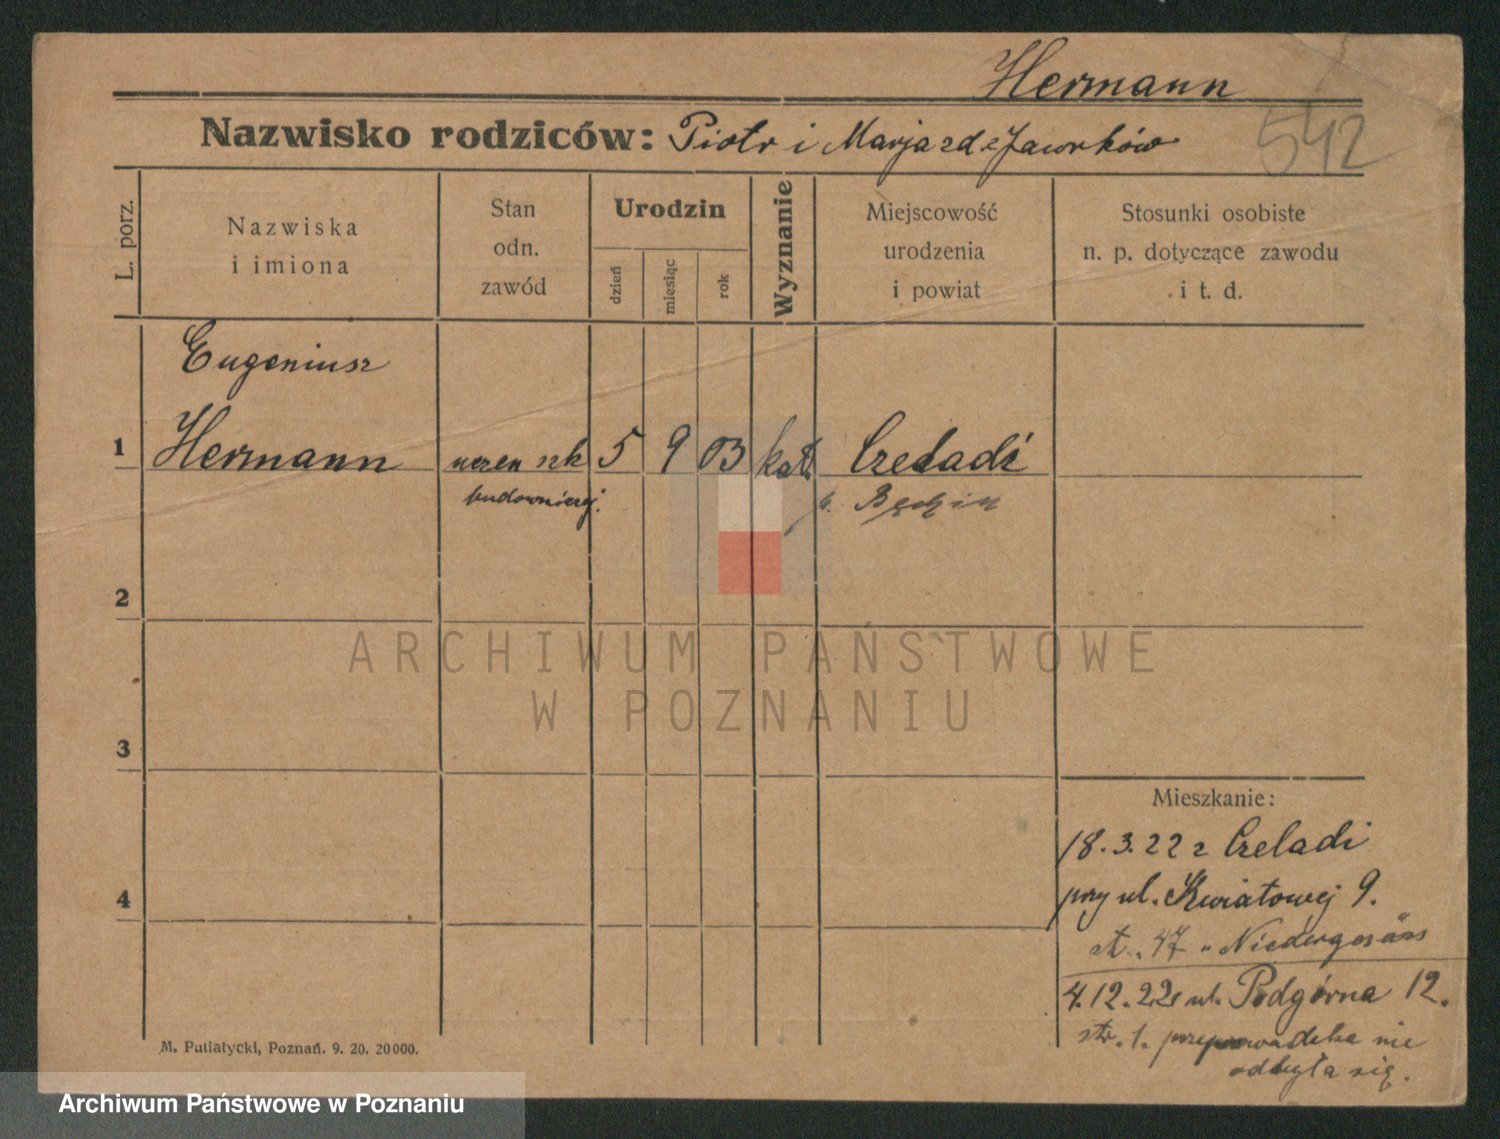 Hermann
Nazwisko rodziców: Piotr i Marja z d. Jaworków
542
L. porz.
Nazwiska
i imiona
Stan
odn.
zawód
Urodzin
dzień
miesiąc
rok
Wyznanie
Miejscowość
urodzenia
i powiat
Stosunki osobiste
n. p. dotyczące zawodu
i t. d.
Eugeniusz
1 Hermann uczen szk 5 9 03 kat Czeladź
budowniczej. p. Będzin
2
ARCHIWUM PAŃSTWOWE
W POZNANIU
3
Mieszkanie:
18.3.22 z Czeladi
4
przy ul. Kwiatowej 9.
st. 47 Niedergesäss
4.12.22 ul. Podgórna 12.
str. 1. przeprowadzka nie
odbyła się.
M. Putiatycki, Poznań. 9. 20. 20000.
Archiwum Państwowe w Poznaniu